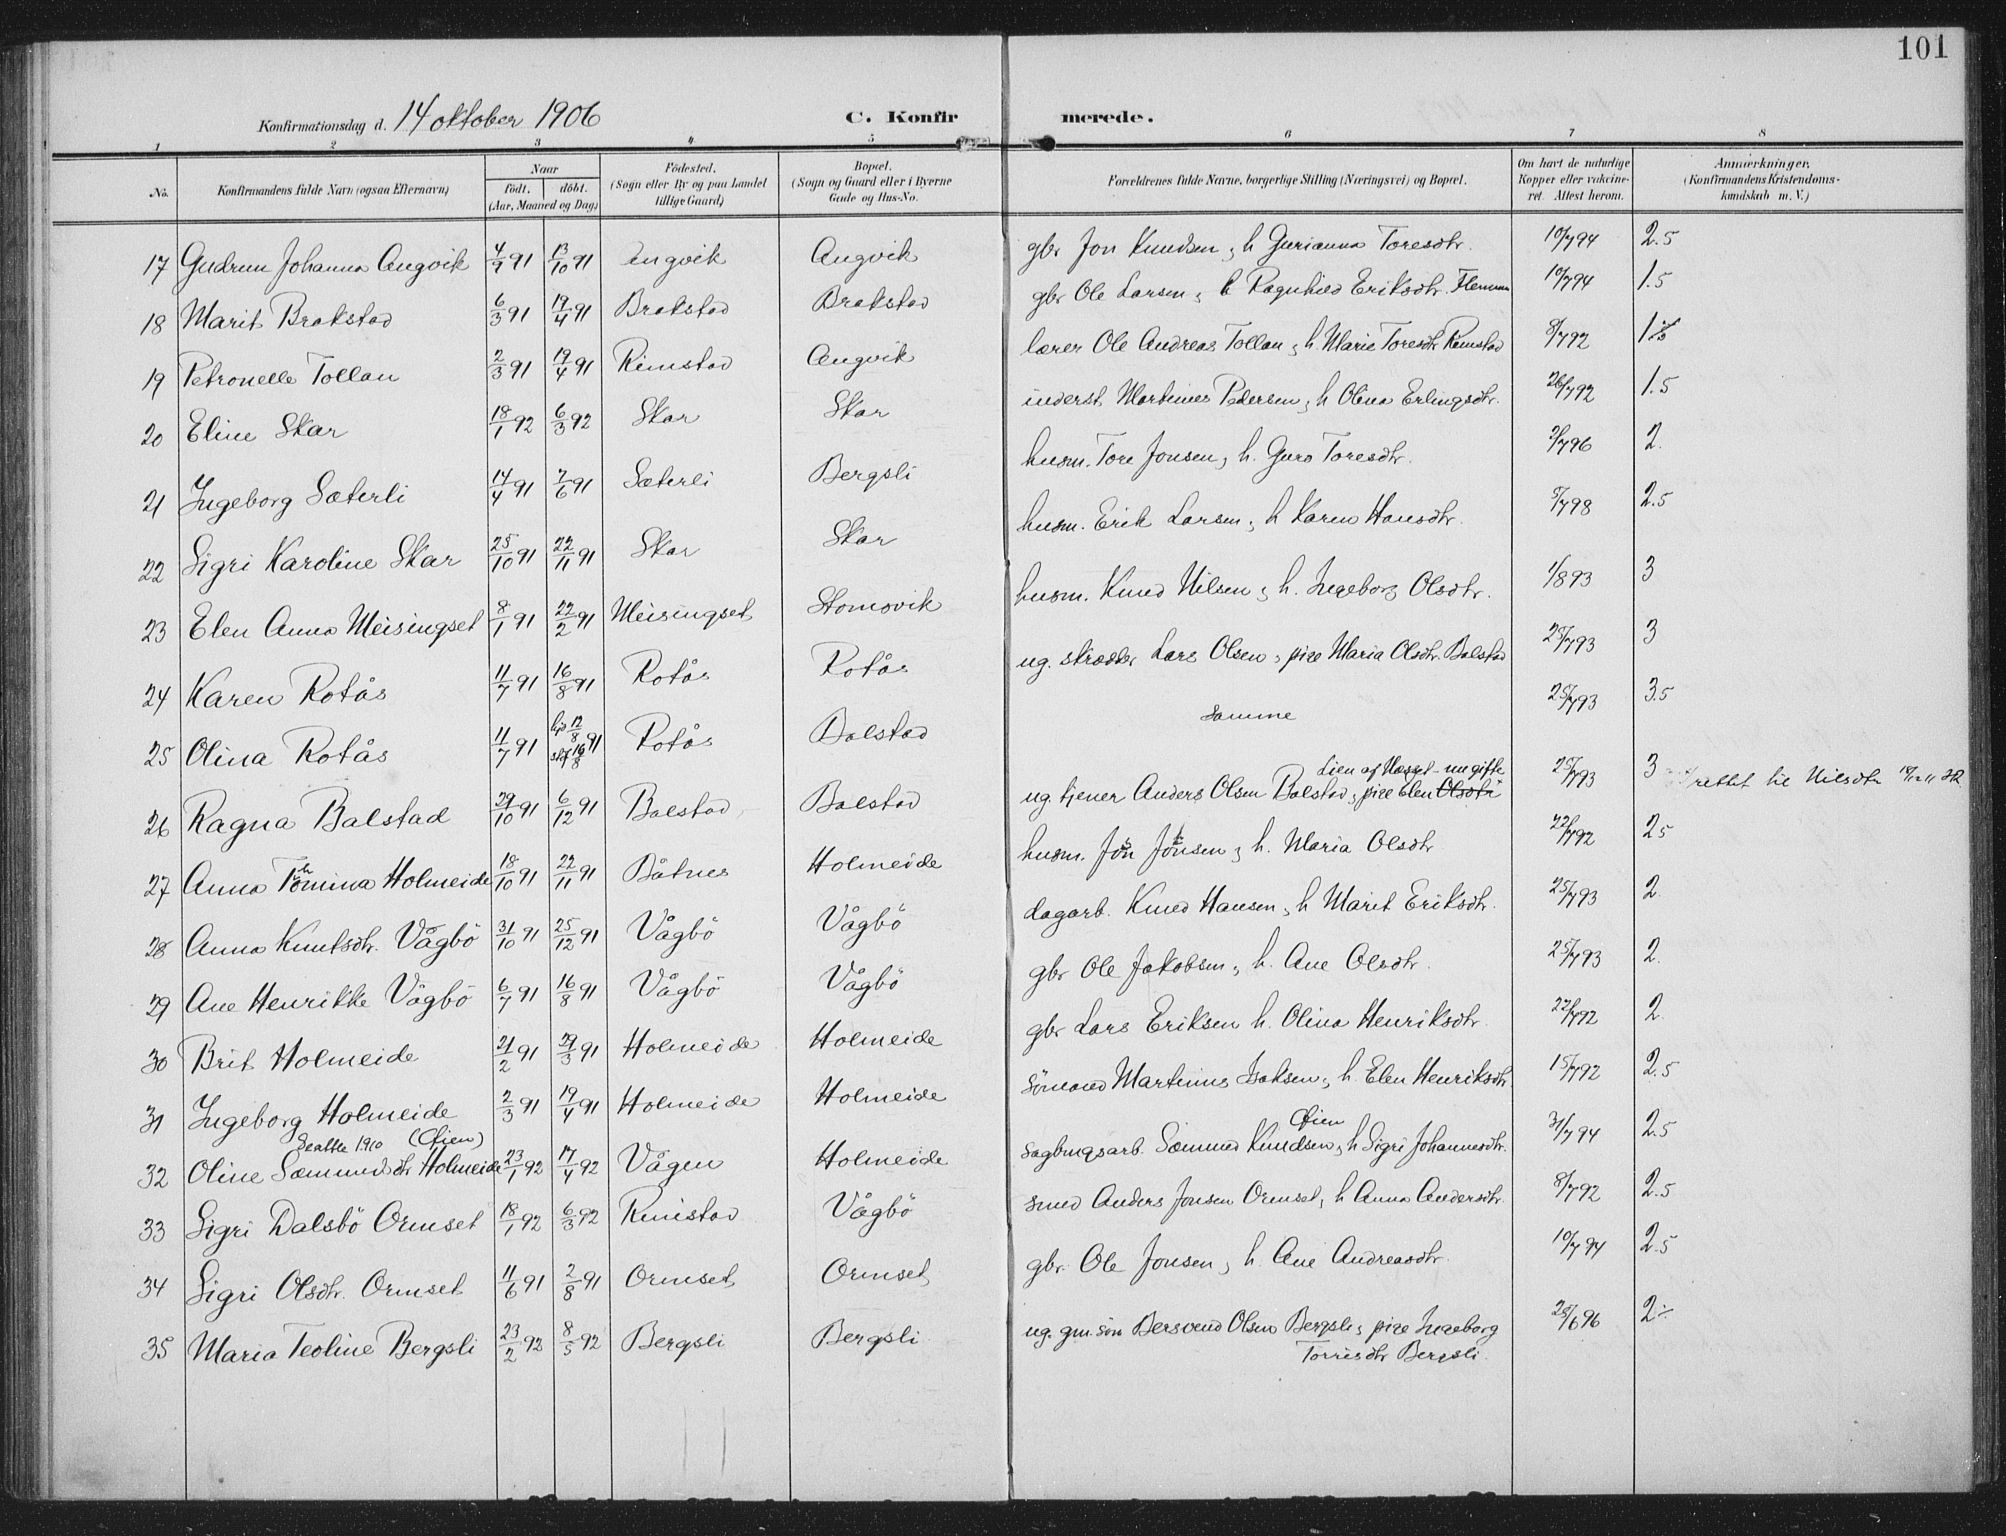 101
Konfirmationsdag d. 14 oktober 1906 C. Konfirmerede.
1 2 3 4 5 6 7 8
No. Konfirmandens fulde Navn (ogsaa Efternavn) Naar födt. döbt. (Aar, Maaned og Dag) Födested. (Sogn eller By og paa Landet tillige Gaard) Bopæl. (Sogn og Gaard eller i Byerne Gade og Hus-No. Forældrenes fulde Navne, borgerlige Stilling (Næringsvei) og Bopæl. Om havt de naturlige Kopper eller vakcineret. Attest herom. Anmærkninger. (Konfirmandens Kristendomskundskab m. V.)
17 Gudrun Johanna Angvik 4/9 91 13/10 91 Angvik Angvik gbr Jon Knudsen, h Gurianna Toresdtr. 10/7 94 2.5
18 Marit Brakstad 6/3 91 19/4 91 Brakstad Brakstad gbr Ole Larsen, h Ragnhild Eriksdtr. 10/7 94 1.5
19 Petronelle Tollan 2/3 91 19/4 91 Rimstad Angvik lærer Ole Andreas Tollan, h. Marie Toresdtr Rimstad 8/7 92
20 Eline Skar 18/1 92 6/3 92 Skar Skar inderst Martinus Pedersen, h Olina Erlingsdtr. 26/7 92 1.5
21 Ingeborg Sæterli 14/4 91 7/6 91 Sæterli Bergsli husm. Tore Jonsen, h. Guro Toresdtr. 2/7 96 2.
22 Sigri Karoline Skar 25/10 91 22/11 91 Skar Skar husm. Erik Larsen, h Karen Hansdtr. 5/7 98 2.5
23 Elen Anna Meisingset 8/1 91 22/2 91 Meisingset Stomsvik husm. Knud Nilsen, h. Ingeborg Olsdtr. 1/8 93 3
24 Karen Rotås 11/7 91 16/8 91 Rotås Rotås ug. skræder Lars Olsen, pige Maria Olsdtr. Balstad 25/7 93 3
25 Olina Rotås 11/7 91 hjd 12/8 stf 16/8 91 Rotås Balstad samme 25/7 93 3.5
26 Ragna Balstad 29/10 91 6/12 91 Balstad Balstad ug. tjener Anders Olsen Balstad, pige Elen Olsdtr 25/7 93 3 rettet til Nilsdtr
27 Anna Tomina Holmeide 18/10 91 22/11 91 Båtnes Holmeide husm. Jon Jonsen, h. Maria Olsdtr. 22/7 92 2.5
28 Anna Knutsdtr. Vågbö 31/10 91 25/12 91 Vågbö Vågbö dagarb. Knud Hansen, h Marit Eriksdtr. 25/7 93 2.
29 Ane Henrikke Vågbö 6/7 91 16/8 91 Vågbö Vågbö gbr Ole Jakobsen, h. Ane Olsdtr. 25/7 93 2.
30 Brit Holmeide 21/2 91 29/3 91 Holmeide Holmeide gbr Lars Eriksen h. Olina Henriksdtr. 22/7 92 2
31 Ingeborg Holmeide 2/3 91 19/4 91 Holmeide Holmeide sömand Martinus Isaksen, h. Elen Henriksdtr. 15/7 92 2.5
Seattle 1910 (Öien) Öien
32 Oline Sæmundsdtr Holmeide 23/1 92 17/4 92 Vågen Holmeide sagbrugsarb. Sæmund Knudsen, h Sigri Johannesdtr. 31/7 94 2.5
33 Sigri Dalsbö Ormset 18/1 92 6/3 92 Rimstad Vågbö smed Anders Jonsen Ormset, h Anna Andersdtr. 8/7 92 2.5
34 Sigri Olsdtr. Ormset 11/6 91 2/8 91 Ormset Ormset gbr. Ole Jonsen, h. Ane Andreasdtr. 10/7 94 2.5
35 Maria Teoline Bergsli 23/2 92 8/5 92 Bergsli Bergsli ug. gm.sön Bersvend Olsen Bergsli, pige Ingeborg 28/6 96 2÷
Torresdtr Bergsli.